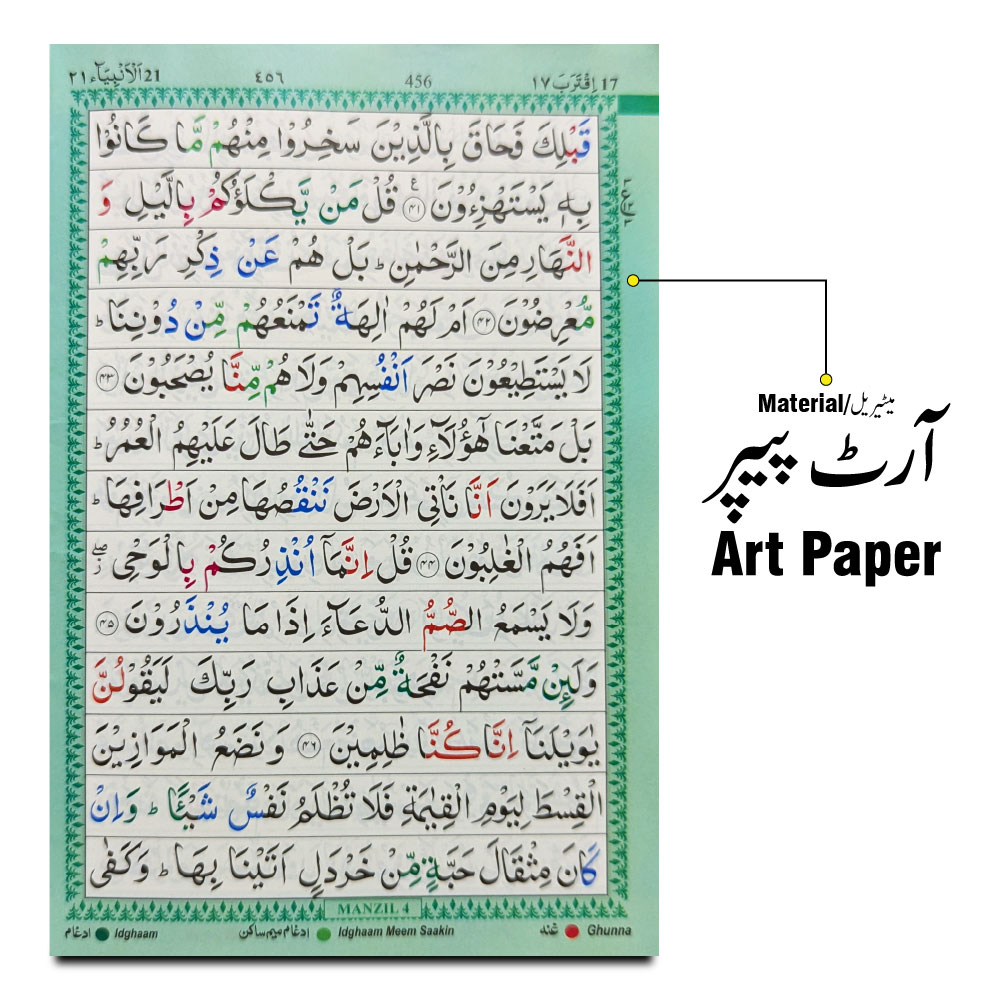 اَلْاَنْبِيَآء ٢١ 21 ٤٥٦ 456 اِقْتَرَبَ ١٧ 17
قَبْلِكَ فَحَاقَ بِالَّذِيْنَ سَخِرُوْا مِنْهُمْ مَّا كَانُوْا
بِهٖ يَسْتَهْزِءُوْنَ ﴿۴۱﴾ قُلْ مَنْ يَّكْلَؤُكُمْ بِالَّيْلِ وَ
النَّهَارِ مِنَ الرَّحْمٰنِ ؕ بَلْ هُمْ عَنْ ذِكْرِ رَبِّهِمْ
مُّعْرِضُوْنَ ﴿۴۲﴾ اَمْ لَهُمْ اٰلِهَةٌ تَمْنَعُهُمْ مِّنْ دُوْنِنَا ؕ
لَا يَسْتَطِيْعُوْنَ نَصْرَ اَنْفُسِهِمْ وَلَا هُمْ مِّنَّا يُصْحَبُوْنَ ﴿۴۳﴾
بَلْ مَتَّعْنَا هٰٓؤُلَآءِ وَاٰبَآءَهُمْ حَتّٰى طَالَ عَلَيْهِمُ الْعُمُرُ ؕ
اَفَلَا يَرَوْنَ اَنَّا نَاْتِى الْاَرْضَ نَنْقُصُهَا مِنْ اَطْرَافِهَا ؕ
اَفَهُمُ الْغٰلِبُوْنَ ﴿۴۴﴾ قُلْ اِنَّمَآ اُنْذِرُكُمْ بِالْوَحْىِ ۖ
وَلَا يَسْمَعُ الصُّمُّ الدُّعَآءَ اِذَا مَا يُنْذَرُوْنَ ﴿۴۵﴾
وَلَئِنْ مَّسَّتْهُمْ نَفْحَةٌ مِّنْ عَذَابِ رَبِّكَ لَيَقُوْلُنَّ
يٰوَيْلَنَآ اِنَّا كُنَّا ظٰلِمِيْنَ ﴿۴۶﴾ وَنَضَعُ الْمَوَازِيْنَ
الْقِسْطَ لِيَوْمِ الْقِيٰمَةِ فَلَا تُظْلَمُ نَفْسٌ شَيْـًٔا ؕ وَاِنْ
كَانَ مِثْقَالَ حَبَّةٍ مِّنْ خَرْدَلٍ اَتَيْنَا بِهَا ؕ وَكَفٰى
MANZIL 4
ادغام Idghaam ادغام میم ساکن Idghaam Meem Saakin غنہ Ghunna
Material/میٹیریل
آرٹ پیپر
Art Paper